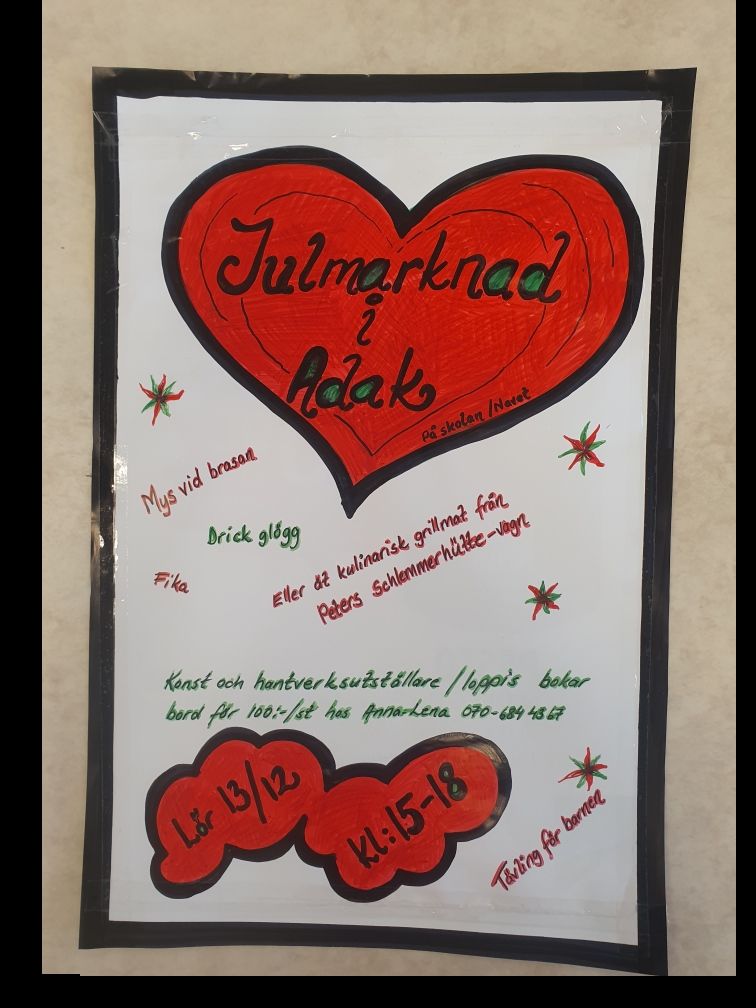 Julmarknad
i
Adak
På skolan /Navet
Mys vid brasan
Drick glögg
Fika
Eller ät kulinarisk grillmat från
Peters Schlemmerhütte-vagn
Konst och hantverksutställare /loppis bokar
bord för 100:-/st hos Anna-Lena 070-684 43 67
Lör 13/12
Kl:15-18
Tävling för barnen